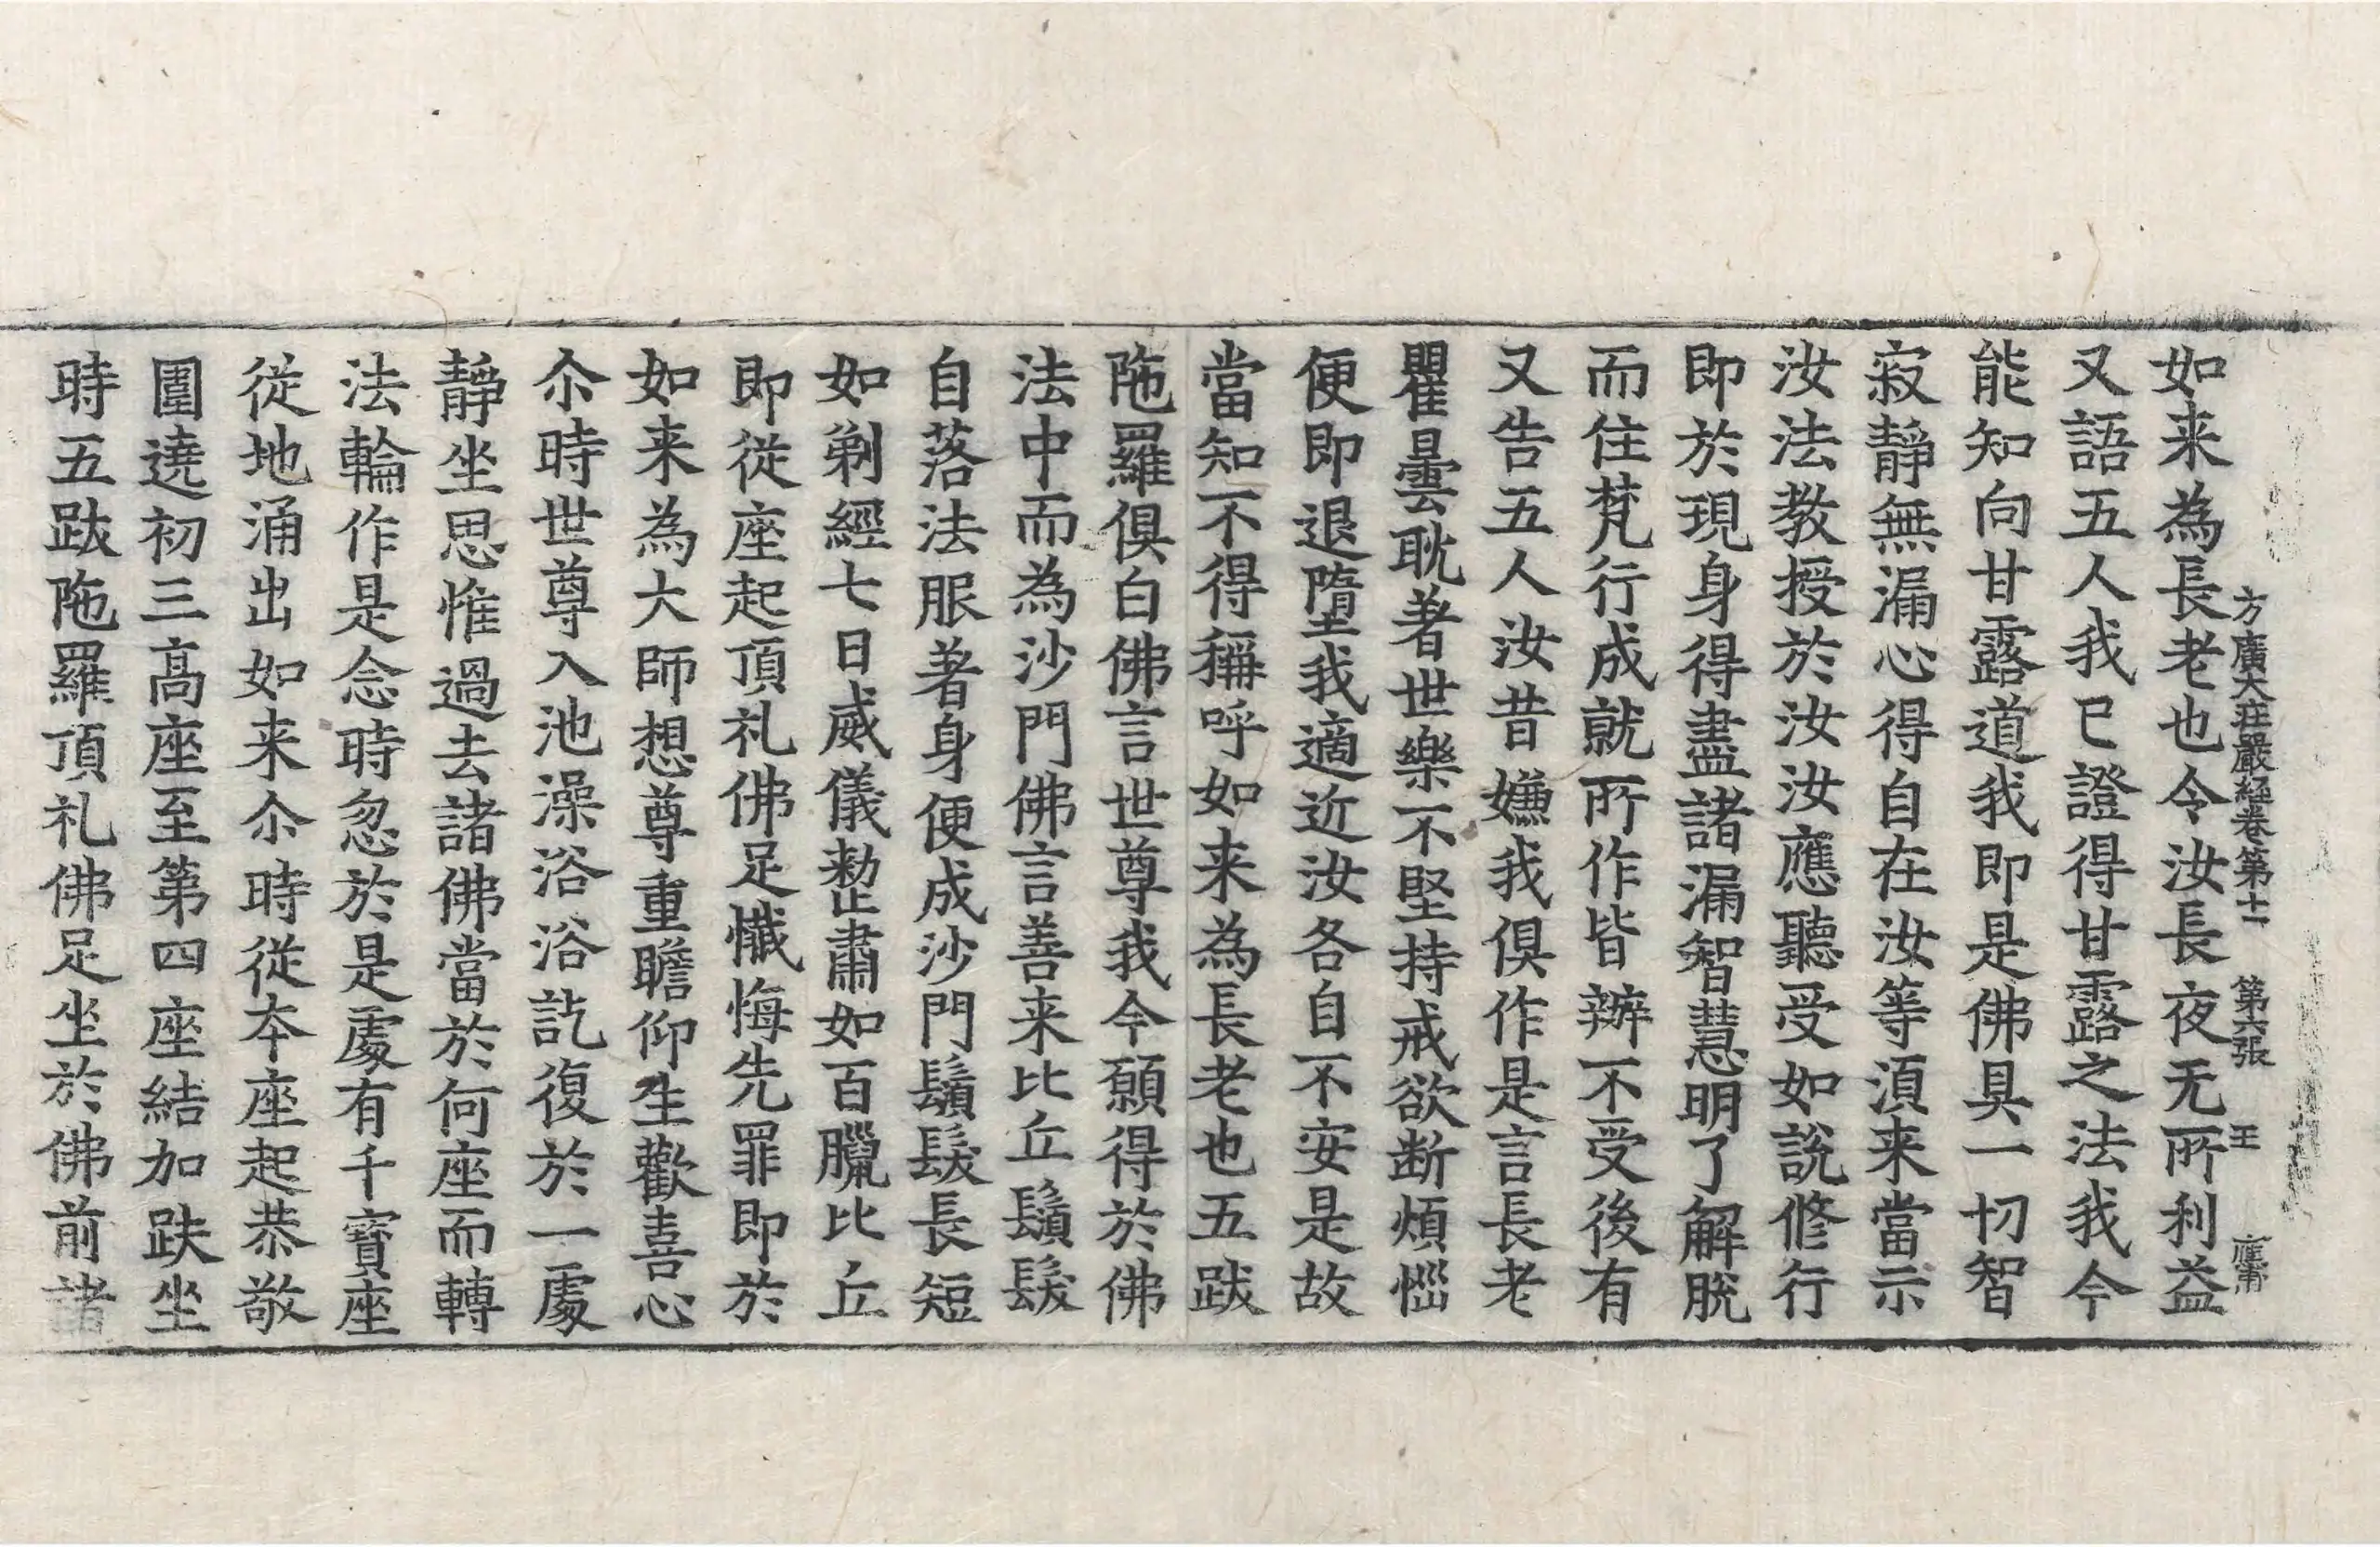 方廣大莊嚴經卷第十一 第六張 王 應甫
如来為長老也令汝長夜无所利益
又語五人我已證得甘露之法我今
能知向甘露道我即是佛具一切智
寂靜無漏心得自在汝等湏来當示
汝法教授於汝汝應聽受如說修行
即於現身得盡諸漏智慧明了解脫
而住梵行成就所作皆辦不受後有
又告五人汝昔嫌我俱作是言長老
瞿曇耽著世樂不堅持戒欲断煩惱
便即退墮我適近汝各自不安是故
當知不得稱呼如来為長老也五跋
陁羅俱白佛言世尊我今願得於佛
法中而為沙門佛言善来比丘鬚髮
自落法服著身便成沙門鬚髮長短
如剃經七日威儀整肅如百臘比丘
即從座起頂礼佛足懺悔先罪即於
如来為大師想尊重瞻仰生歡喜心
尒時世尊入池澡浴浴訖復於一處
靜坐思惟過去諸佛當於何座而轉
法輪作是念時忽於是處有千寶座
從地涌出如来尒時從本座起恭敬
圍遶初三高座至第四座結加趺坐
時五跋陁羅頂礼佛足坐於佛前諸